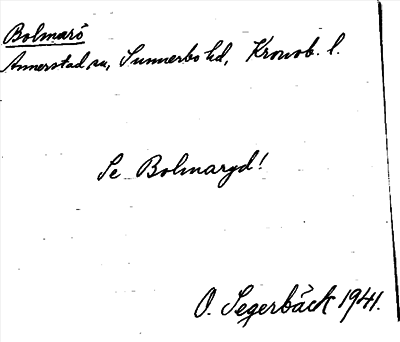 Bolmarö
Annerstad sn, Sunnerbo hd, Kronob. l.
Se Bolmaryd!
O. Segerbäck 1941.